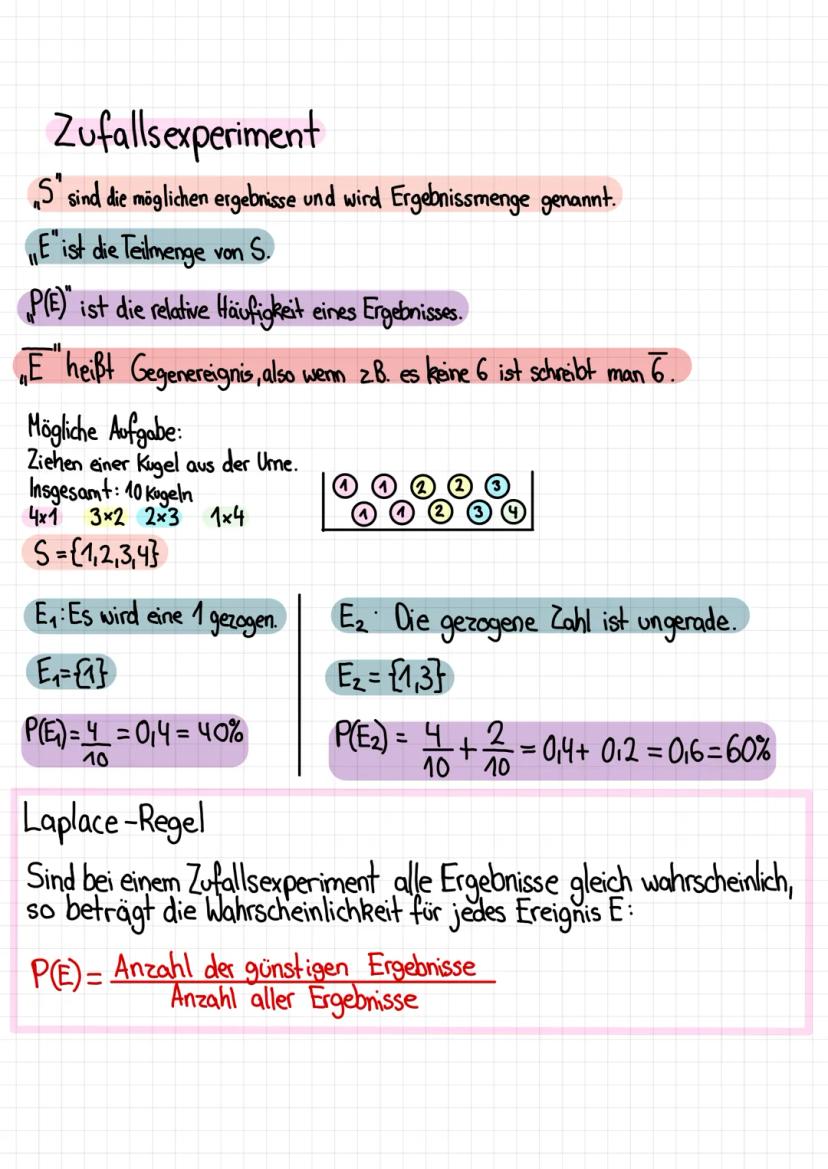 Zufallsexperiment
„S" sind die möglichen ergebnisse und wird Ergebnissmenge genannt.
„E" ist die Teilmenge von S.
„P(E)" ist die relative Häufigkeit eines Ergebnisses.
„E̅" heißt Gegenereignis, also wenn z.B. es keine 6 ist schreibt man 6̅.
Mögliche Aufgabe:
Ziehen einer Kugel aus der Urne.
Insgesamt: 10 Kugeln
4x1 3x2 2x3 1x4
1 1 2 2 3
1 1 2 3 4
S = {1,2,3,4}
E₁: Es wird eine 1 gezogen.
E₁ = {1}
P(E₁) = 4/10 = 0,4 = 40%
E₂: Die gezogene Zahl ist ungerade.
E₂ = {1,3}
P(E₂) = 4/10 + 2/10 = 0,4 + 0,2 = 0,6 = 60%
Laplace-Regel
Sind bei einem Zufallsexperiment alle Ergebnisse gleich wahrscheinlich,
so beträgt die Wahrscheinlichkeit für jedes Ereignis E:
P(E) = Anzahl der günstigen Ergebnisse
Anzahl aller Ergebnisse